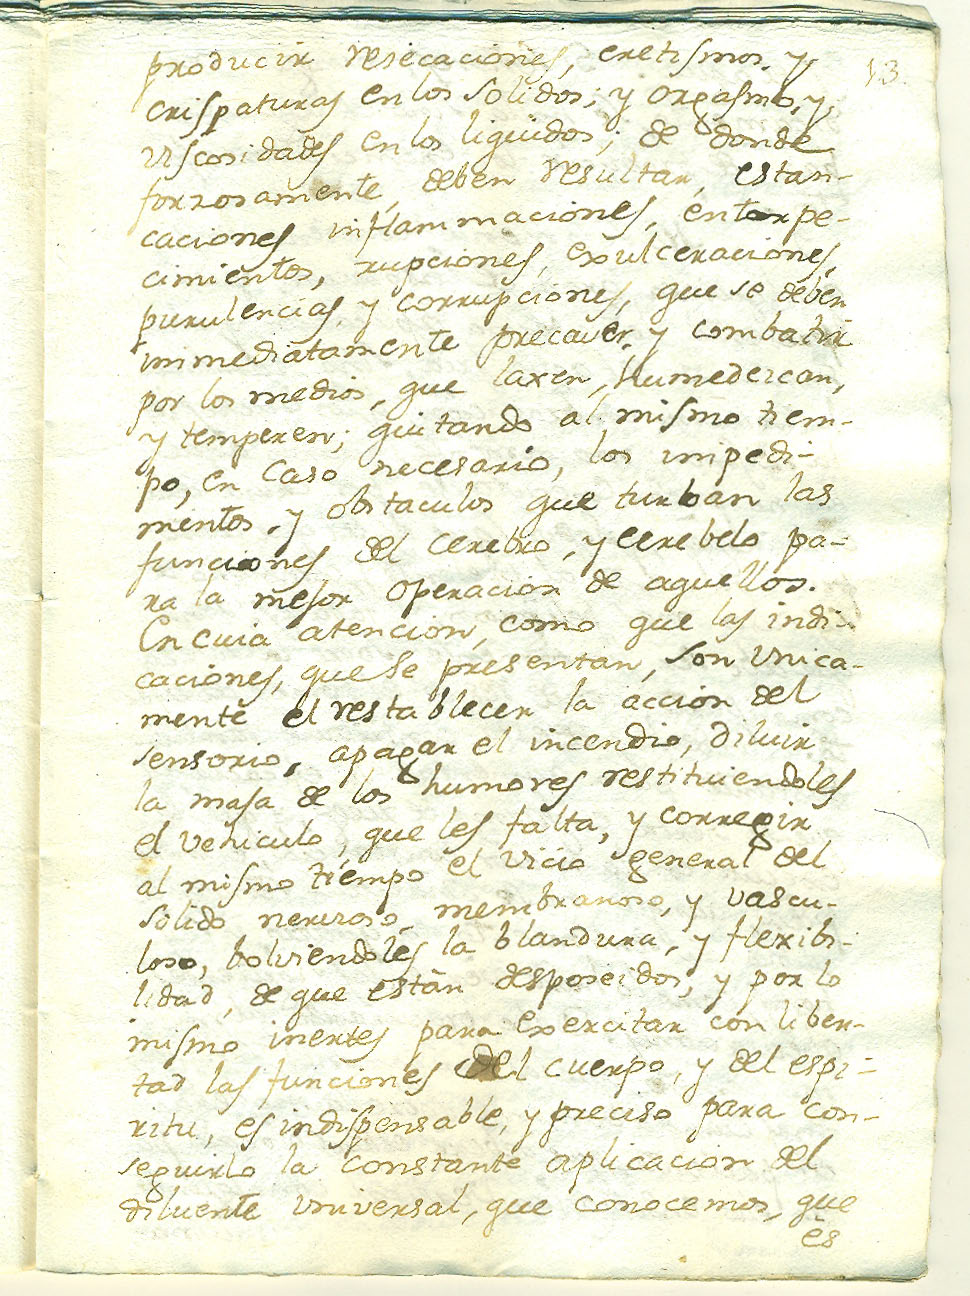 13.
producir resecaciones, eretismos, y
crispaturas en los solidos; y orgasmo, y,
viscosidades en los liquidos; de donde
forzosamente, deben resultar, estan-
caciones inflammaciones, entorpe-
cimientos, rupciones, exulceraciones,
purulencias, y corrupciones, que se deben
immediatamente precaver, y combatir
por los medios, que laxen, humedezcan,
y temperen; quitando al mismo tiem-
po, en caso necesario, los impedi-
mentos, y obstaculos que turban las
funciones del cerebro, y cerebelo pa-
ra la mejor operacion de aquellos.
En cuia atencion, como que las indi-
caciones, que se presentan, son unica-
mente el restablecer la acción del
sensorio, apagar el incendio, diluir
la masa de los humores restituiendoles
el vehiculo, que les falta, y corregir
al mismo tiempo el vicio general del
sólido nervioso, membranoso, y vascu-
loso, bolviendoles la blandura, y flexibi-
lidad, de que están desposeidos, y por lo
mismo inertes para exercitar con liber-
tad las funciones del cuerpo, y del espi-
ritu, es indispensable, y preciso para con-
seguirlo la constante aplicacion del
diluente universal, que conocemos, que
es